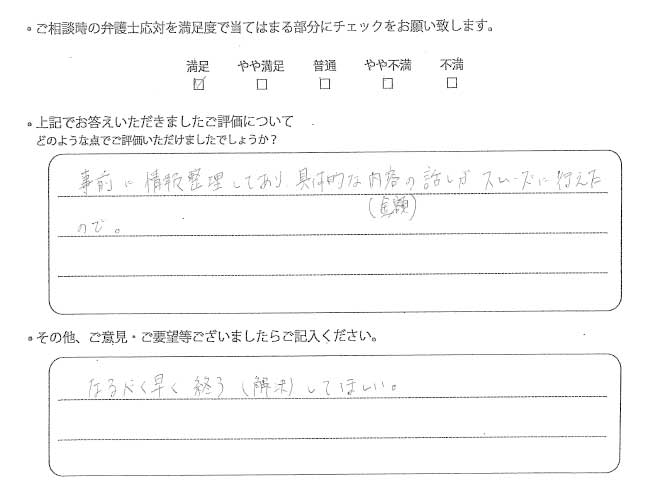 ・ご相談時の弁護士応対を満足度で当てはまる部分にチェックをお願い致します。
満足 やや満足 普通 やや不満 不満
☑ □ □ □ □
・上記でお答えいただきましたご評価について
どのような点でご評価いただけましたでしょうか？
事前に情報整理しており、具体的な内容の話しがスムーズに行えた
(金額)
ので。
・その他、ご意見・ご要望等ございましたらご記入ください。
なるべく早く終る(解決)してほしい。